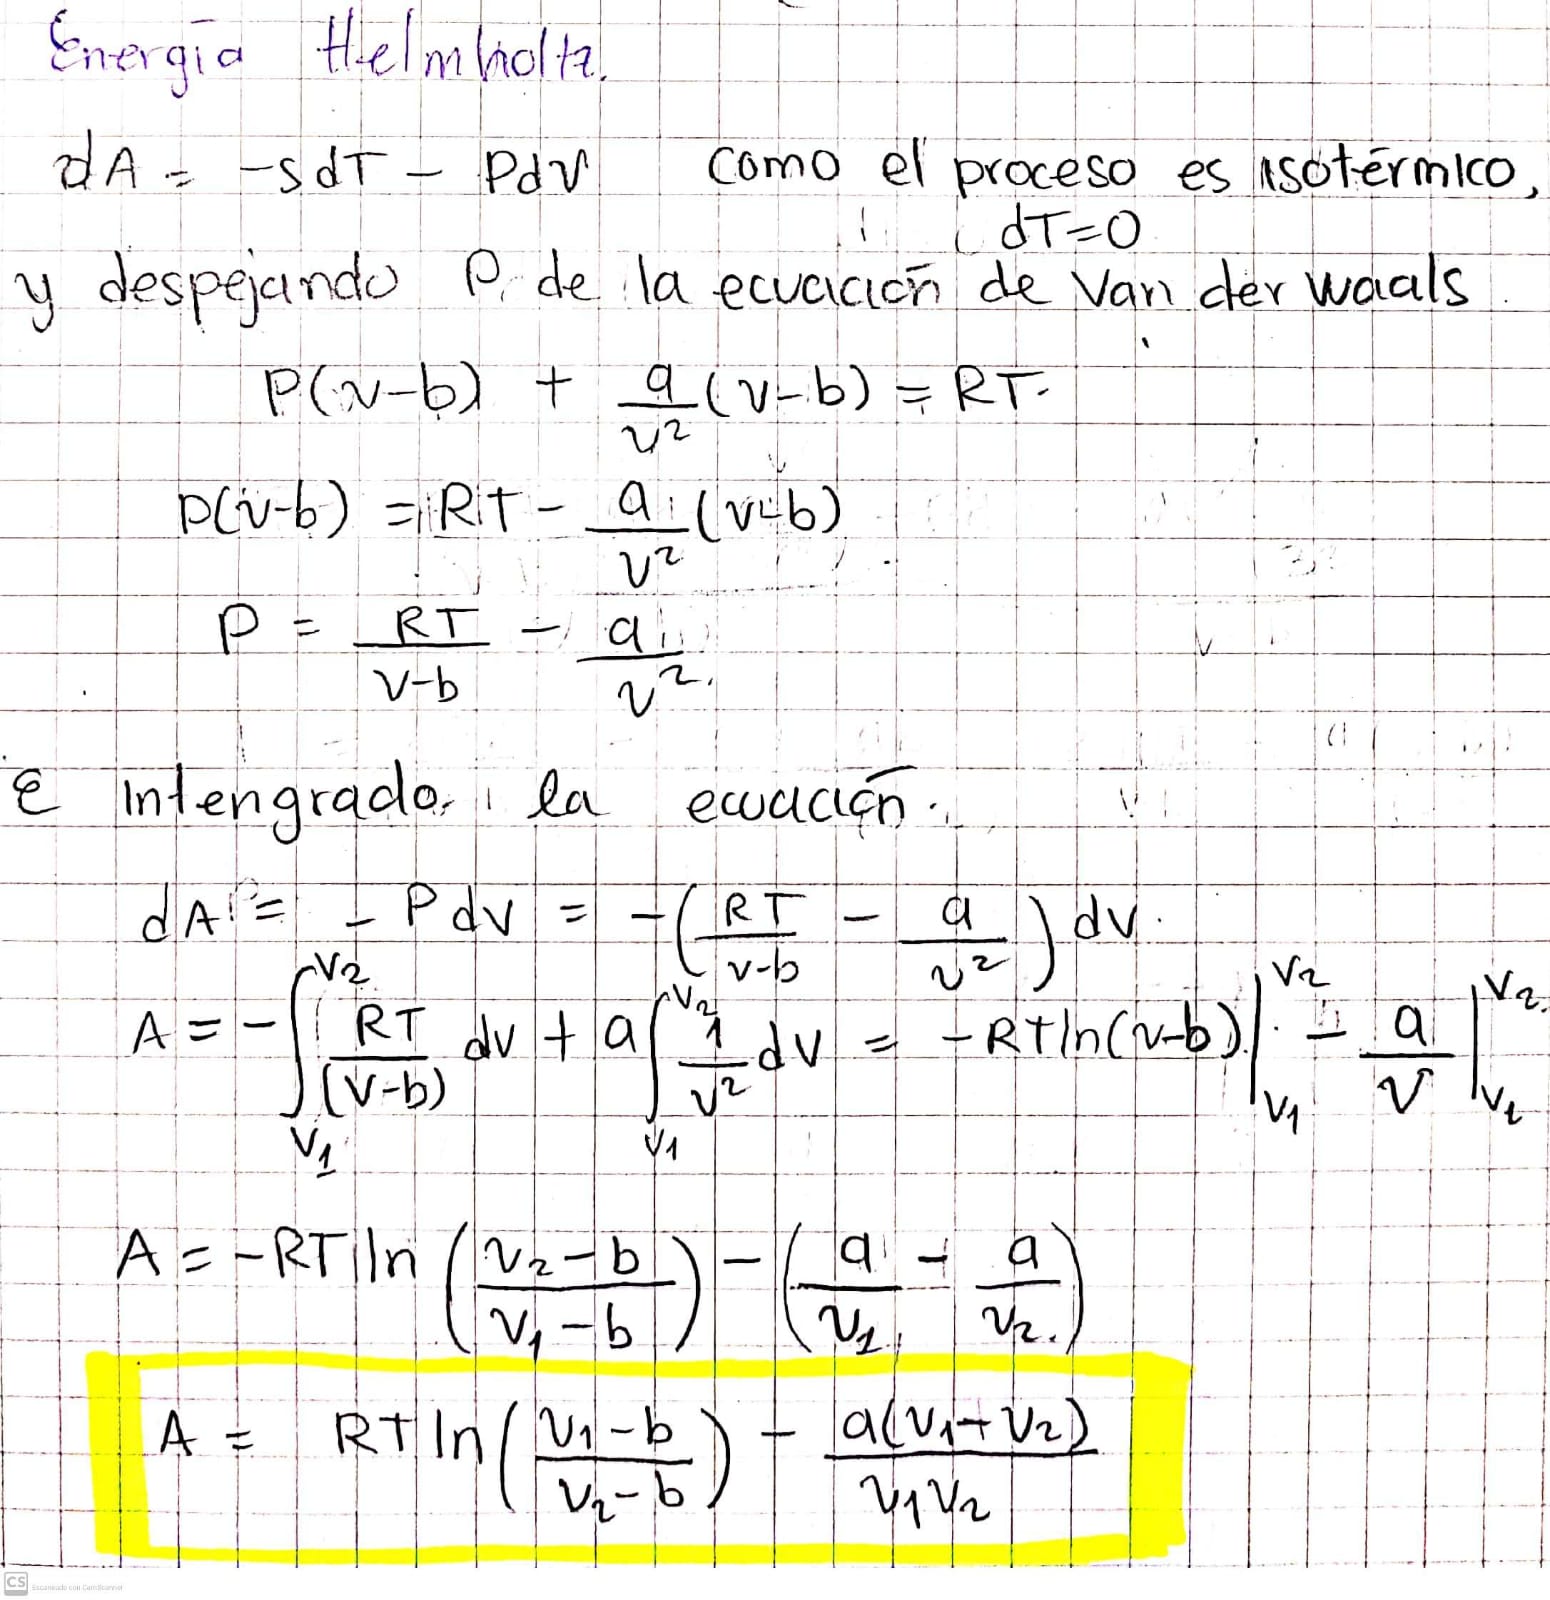 Energía Helmholtz.
dA = -SdT - PdV como el proceso es isotérmico,
dT=0
y despejando P de la ecuación de Van der Waals.
P(v-b) + a/v² (v-b) = RT.
P(v-b) = RT - a/v² (v-b)
P = RT/v-b - a/v²
E intengrado la ecuación.
dA = - Pdv = -(RT/v-b - a/v²) dv.
A = -∫_{V1}^{V2} RT/(V-b) dv + a∫_{V1}^{V2} 1/v² dv = -RTln(v-b)|_{V1}^{V2} - a/v |_{V1}^{V2}
A = -RT ln (v2-b/v1-b) - (a/v2 - a/v1)